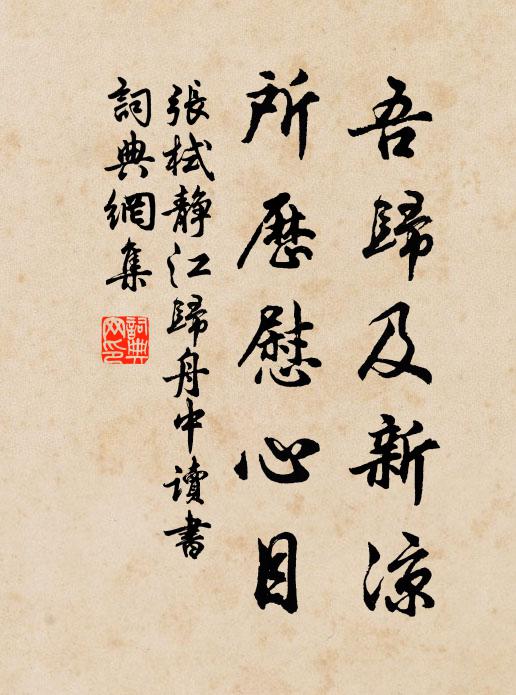 吾歸及新涼
所歷慰心目
張栻靜江歸舟中讀書
詞典網集
詞典網印